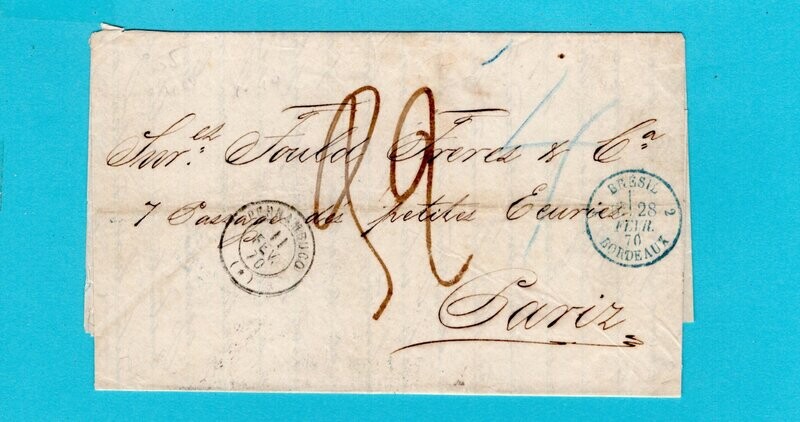 Snr.es Fould Freres & C.a
7 Passage des petites Ecuries
Pariz
PERNAMBUCO
11
FEV
70
(*)
BRÉSIL 2
28
FEVR.
70
BORDEAUX